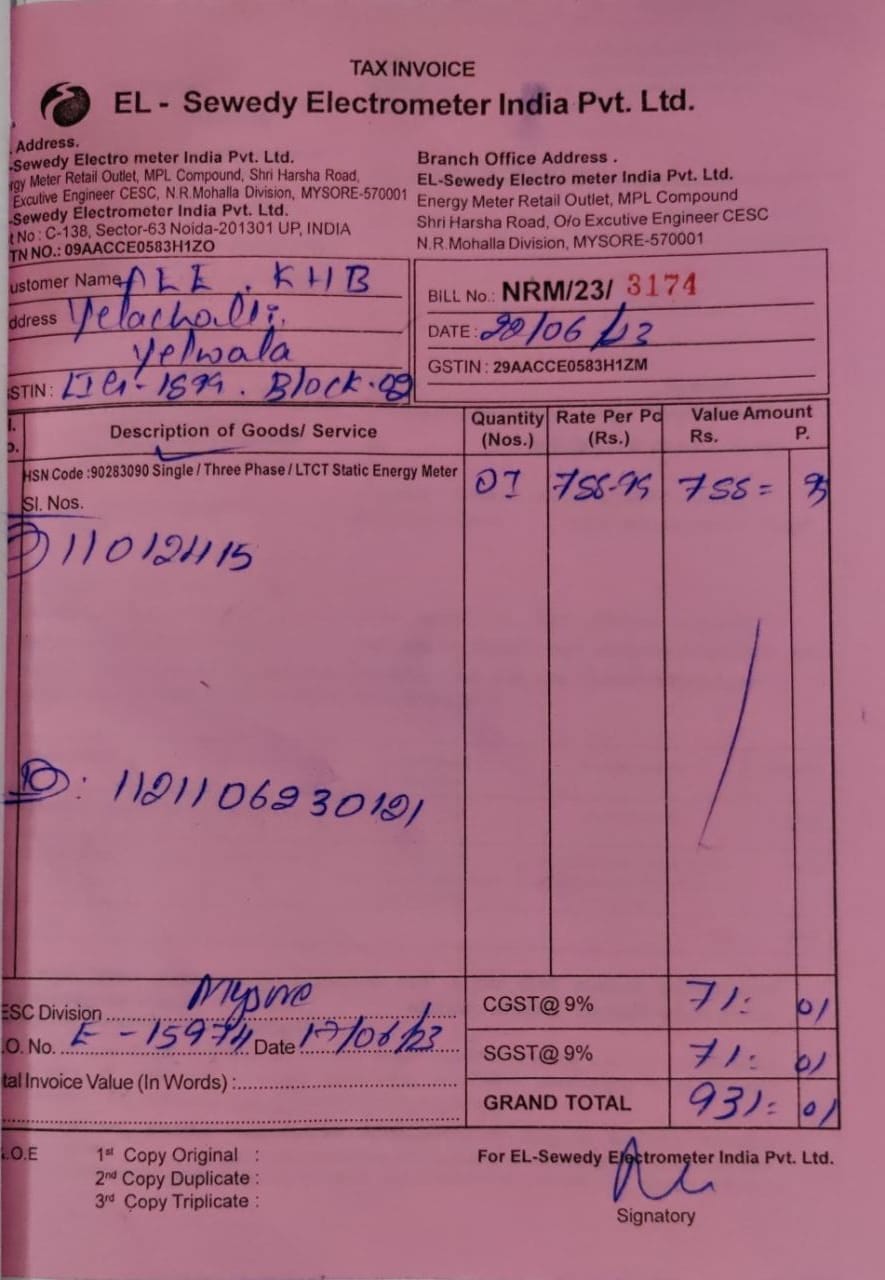 TAX INVOICE
EL - Sewedy Electrometer India Pvt. Ltd.
. Address.
-Sewedy Electro meter India Pvt. Ltd.
rgy Meter Retail Outlet, MPL Compound, Shri Harsha Road,
Excutive Engineer CESC, N.R.Mohalla Division, MYSORE-570001
-Sewedy Electrometer India Pvt. Ltd.
t No : C-138, Sector-63 Noida-201301 UP, INDIA
TN NO.: 09AACCE0583H1ZO
Branch Office Address .
EL-Sewedy Electro meter India Pvt. Ltd.
Energy Meter Retail Outlet, MPL Compound
Shri Harsha Road, O/o Excutive Engineer CESC
N.R.Mohalla Division, MYSORE-570001
ustomer Name KHB
ddress Yelachalli.
Yelwala
STIN : Block.
BILL No.: NRM/23/ 3174
DATE : /06/23
GSTIN : 29AACCE0583H1ZM
Description of Goods/ Service Quantity (Nos.) Rate Per Pc (Rs.) Value Amount Rs. P.
HSN Code :90283090 Single / Three Phase / LTCT Static Energy Meter 01
Sl. Nos.
ESC Division Mysore
.O. No. E - 15974 Date /06/23
tal Invoice Value (In Words) :
CGST@ 9% 71: 01
SGST@ 9% 71: 01
GRAND TOTAL 931: 01
.O.E
1st Copy Original :
2nd Copy Duplicate :
3rd Copy Triplicate :
For EL-Sewedy Electrometer India Pvt. Ltd.
Signatory